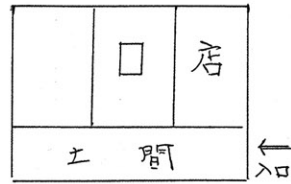 店
土間
入口